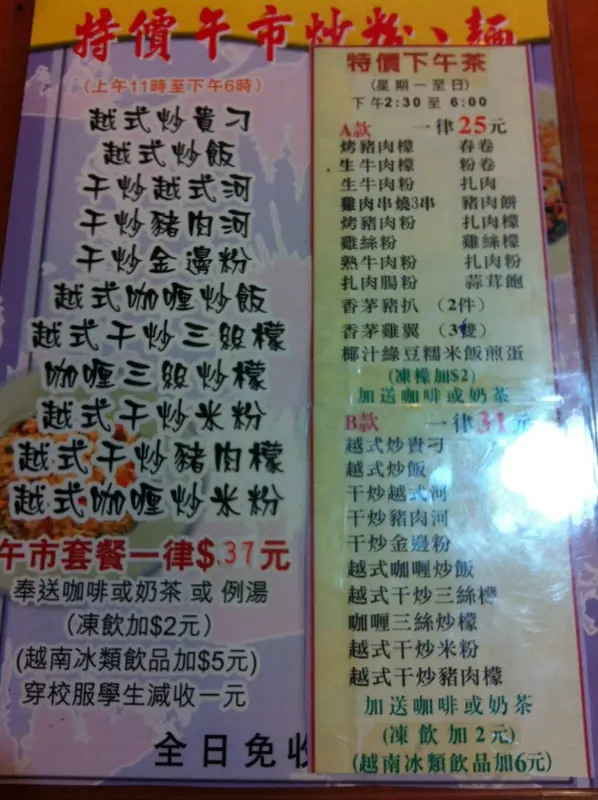 特價午市炒粉、麵
(上午11時至下午6時)
越式炒貴刁
越式炒飯
干炒越式河
干炒豬肉河
干炒金邊粉
越式咖喱炒飯
越式干炒三絲檬
咖喱三絲炒檬
越式干炒米粉
越式干炒豬肉檬
越式咖喱炒米粉
午市套餐一律$.37元
奉送咖啡或奶茶 或 例湯
(凍飲加$2元)
(越南冰類飲品加$5元)
穿校服學生減收一元
全日免收
特價下午茶
(星期一至日)
下午2:30 至 6:00
A款 一律25元
烤豬肉檬 春卷
生牛肉檬 粉卷
生牛肉粉 扎肉
雞肉串燒3串 豬肉餅
烤豬肉粉 扎肉檬
雞絲粉 雞絲檬
熟牛肉粉 扎肉粉
扎肉腸粉 蒜茸飽
香茅豬扒 (2件)
香茅雞翼 (3隻)
椰汁綠豆糯米飯煎蛋
(凍檬加$2)
加送咖啡或奶茶
B款 一律31元
越式炒貴刁
越式炒飯
干炒越式河
干炒豬肉河
干炒金邊粉
越式咖喱炒飯
越式干炒三絲檬
咖喱三絲炒檬
越式干炒米粉
越式干炒豬肉檬
加送咖啡或奶茶
(凍飲加2元)
(越南冰類飲品加6元)